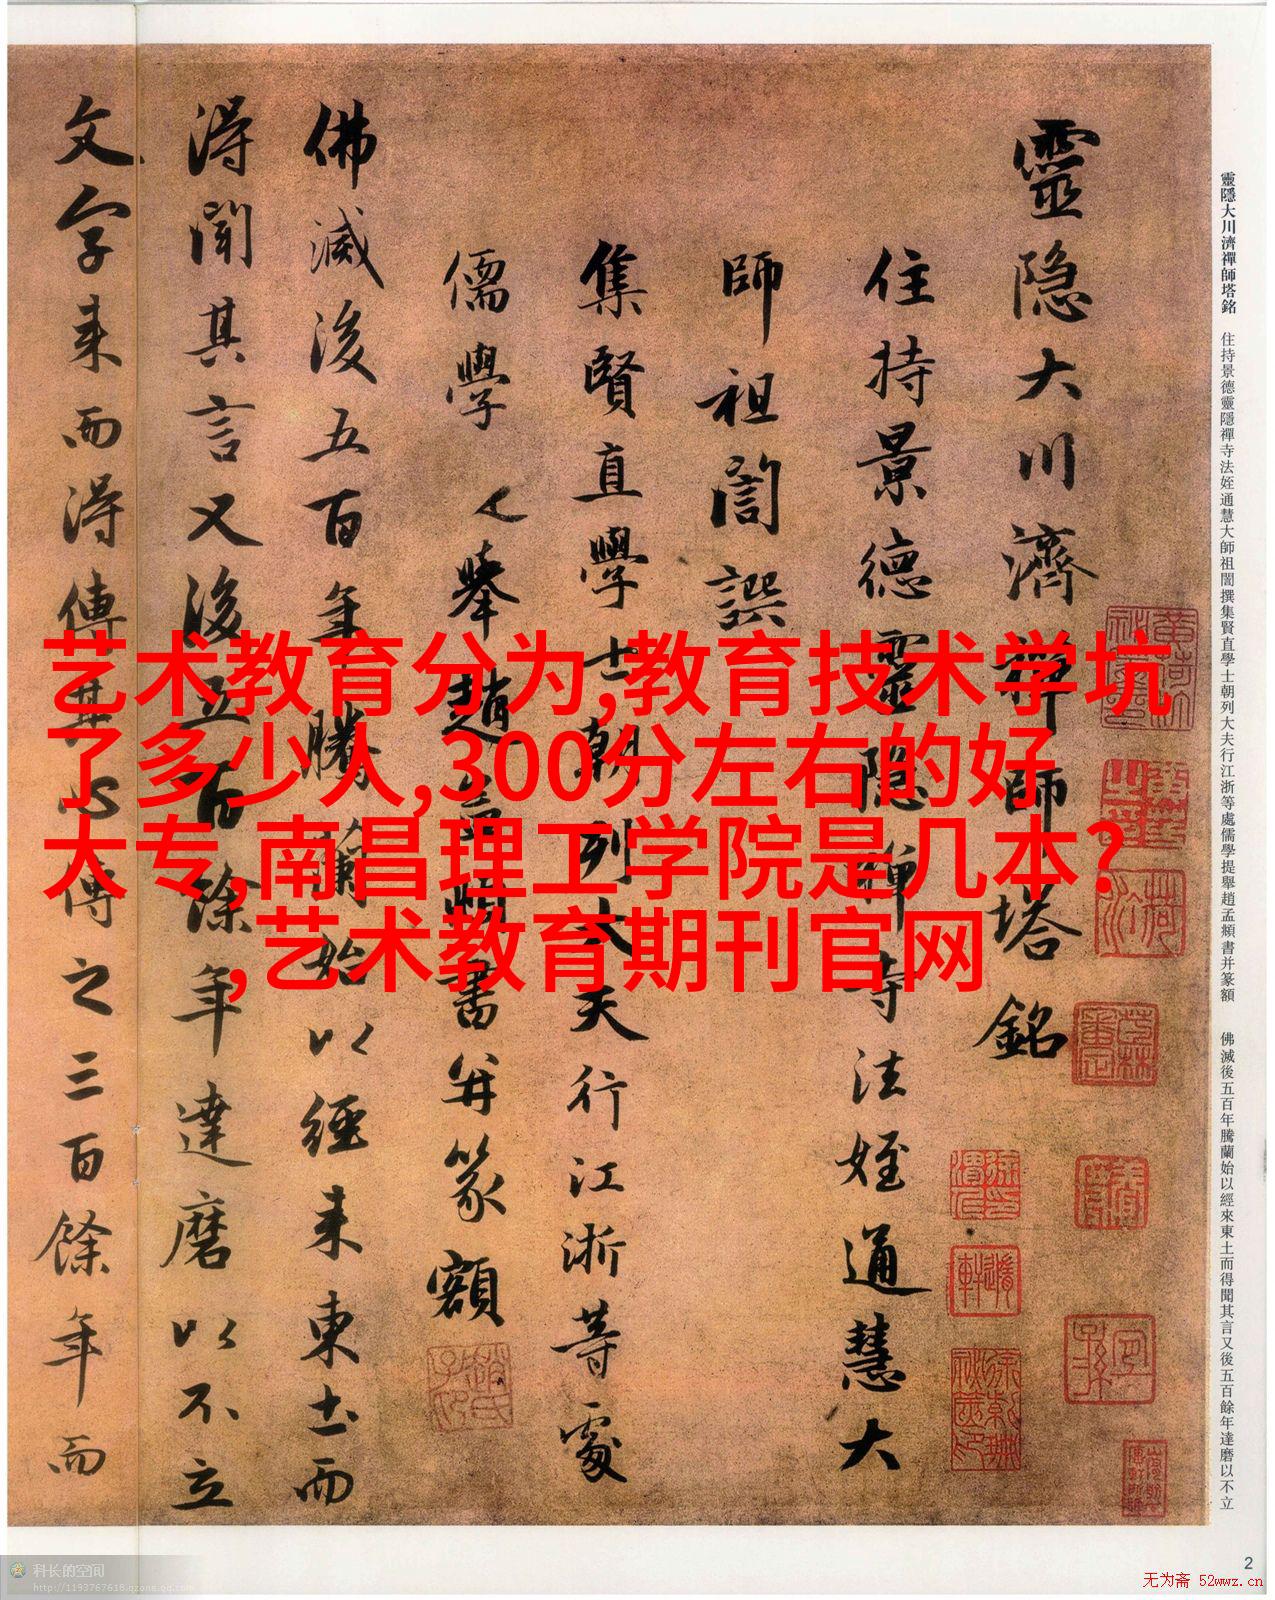 靈隐大川濟禅師塔銘
住持景德靈隐禅寺法姪通慧大
師祖誾譔
集賢直學士朝列大夫行江浙等處
儒學提舉趙孟頫書并篆額
佛滅後五百年騰蘭始以經来東土而
得聞其言又後五百餘年達磨以不立
文字来而得傳其心傳之三百餘年而
靈隱大川濟禪師塔銘 住持景德靈隱禪寺法姪通慧大師祖誾撰集賢直學士朝列大夫行江浙等處儒學提舉趙孟頫書并篆額 佛滅後五百年騰蘭始以經來東土而得聞其言又後五百餘年達磨以不立
艺术教育分为,教育技术学坑
了多少人,300分左右的好
大专,南昌理工学院是几本?
,艺术教育期刊官网
2
科长的空间
http://1193767618.qzone.qq.com
无为斋 52wwz.cn